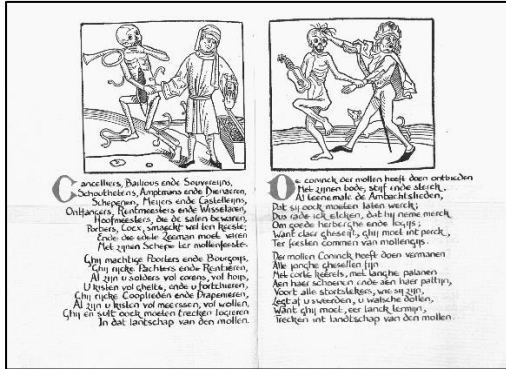 Cancelliers, Bailious ende Souvereijns,
Schouthetens, Amptmans ende Dienaren,
Schepenen, Meijers ende Casteleijns,
Ontfangers, Rentmeesters ende Wisselaren,
Hoofmeesters, die de safen bewaren,
Portiers, Cocx, smaeckt wel ten keeste;
Ende die edele Zeeman moet varen
Met zijnen Schepe ter mollenfeeste.
Ghij machtige Poorters ende Bourgoijs,
Ghij rijcke Pachters ende Rentieren,
Al zijn u solders vol corens, vol hoijs,
U kisten vol ghelts, ende u fortchieren,
Ghij rijcke Cooplieden ende Drapenieren,
Al zijn u kisten vol meerssen, vol wollen,
Ghij en sult oock moeten trecken logieren
In dat lantschap van den mollen.
De coninck der mollen heeft doen ontbieden
Met zijnen bode, stijf ende sterck,
Al teenemale de Ambachtslieden,
Dat sij oock moeten laten werck;
Dus rade ick elcken, dat hij neme merck
Om goede herberghe ende logijs;
Want claer gheseijt, ghij moet int perck,
Ter feesten commen van mollengijs.
Der mollen Coninck heeft doen vermanen
Alle jonghe ghesellen fijn
Met corte keerels, met langhe palanen
Aen haer schoenen ende aen haer pattijn,
Voort alle stortstekers, wie sij zijn,
Legt af u sweerden, u walsche dollen,
Want ghij moet, eer lanck termijn,
Trecken int landtschap van den mollen.